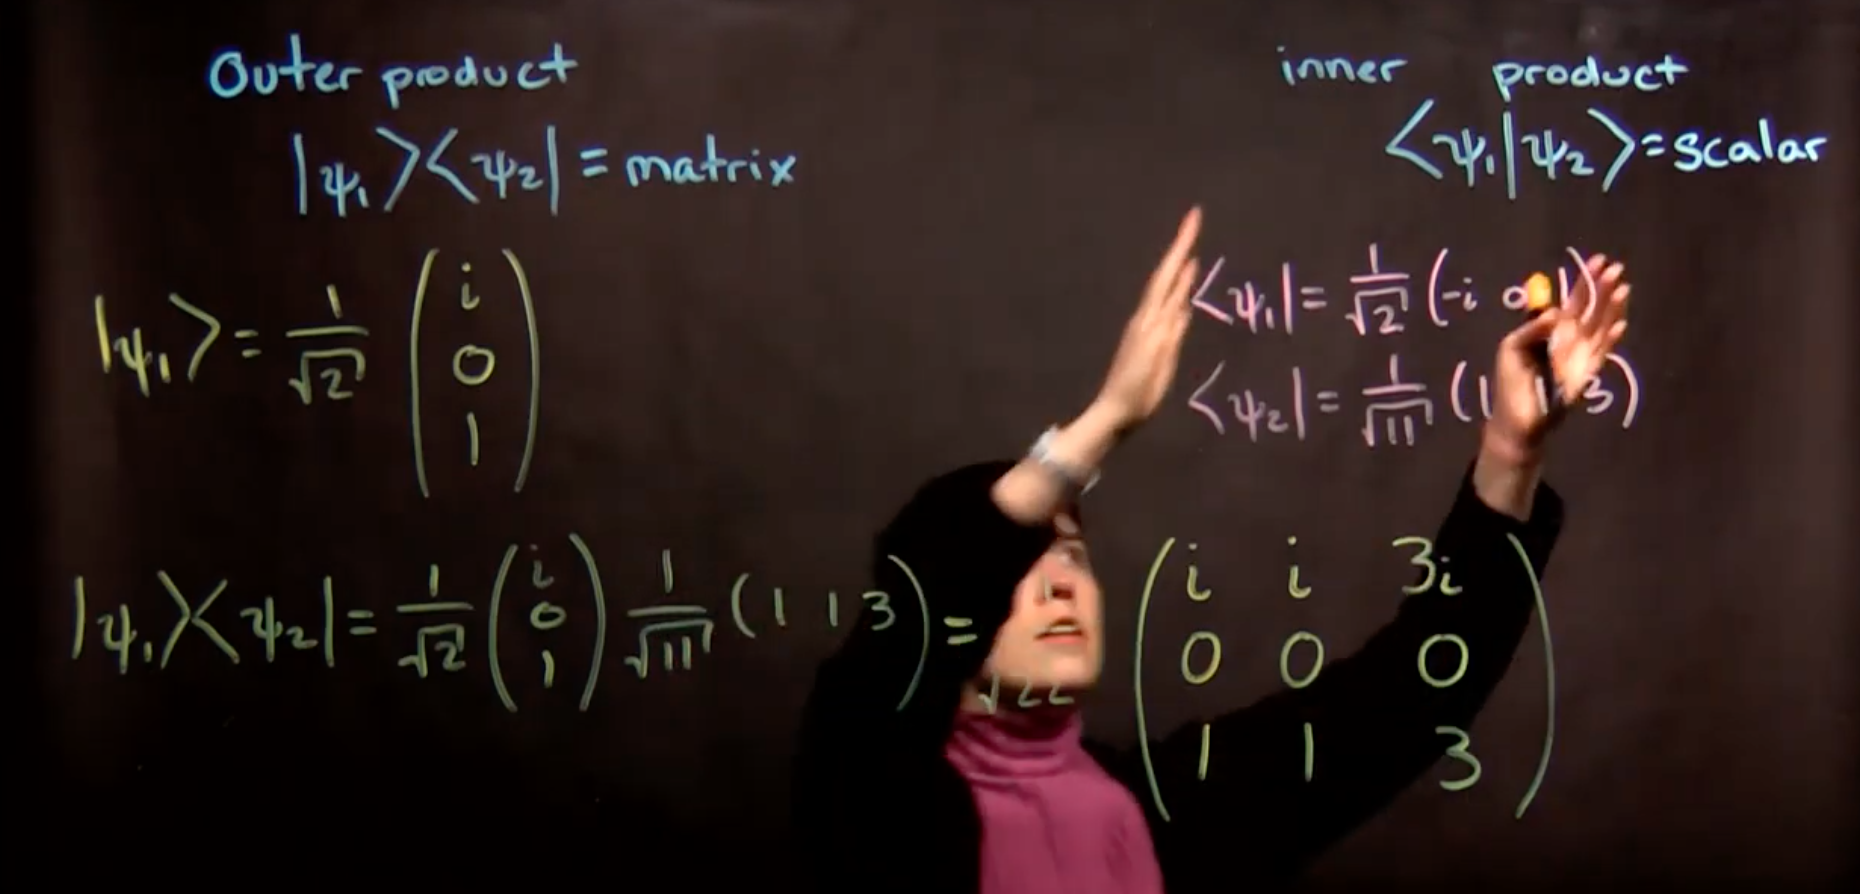 Outer product
|ψ₁⟩⟨ψ₂| = matrix
inner product
⟨ψ₁|ψ₂⟩ = scalar
|ψ₁⟩ = 1/√2 (i 0 1)
⟨ψ₁| = 1/√2 (-i 0 1)
⟨ψ₂| = 1/√11 (1 1 3)
|ψ₁⟩⟨ψ₂| = 1/√2 (i 0 1) 1/√11 (1 1 3) = 1/√22 (i i 3i
0 0 0
1 1 3)